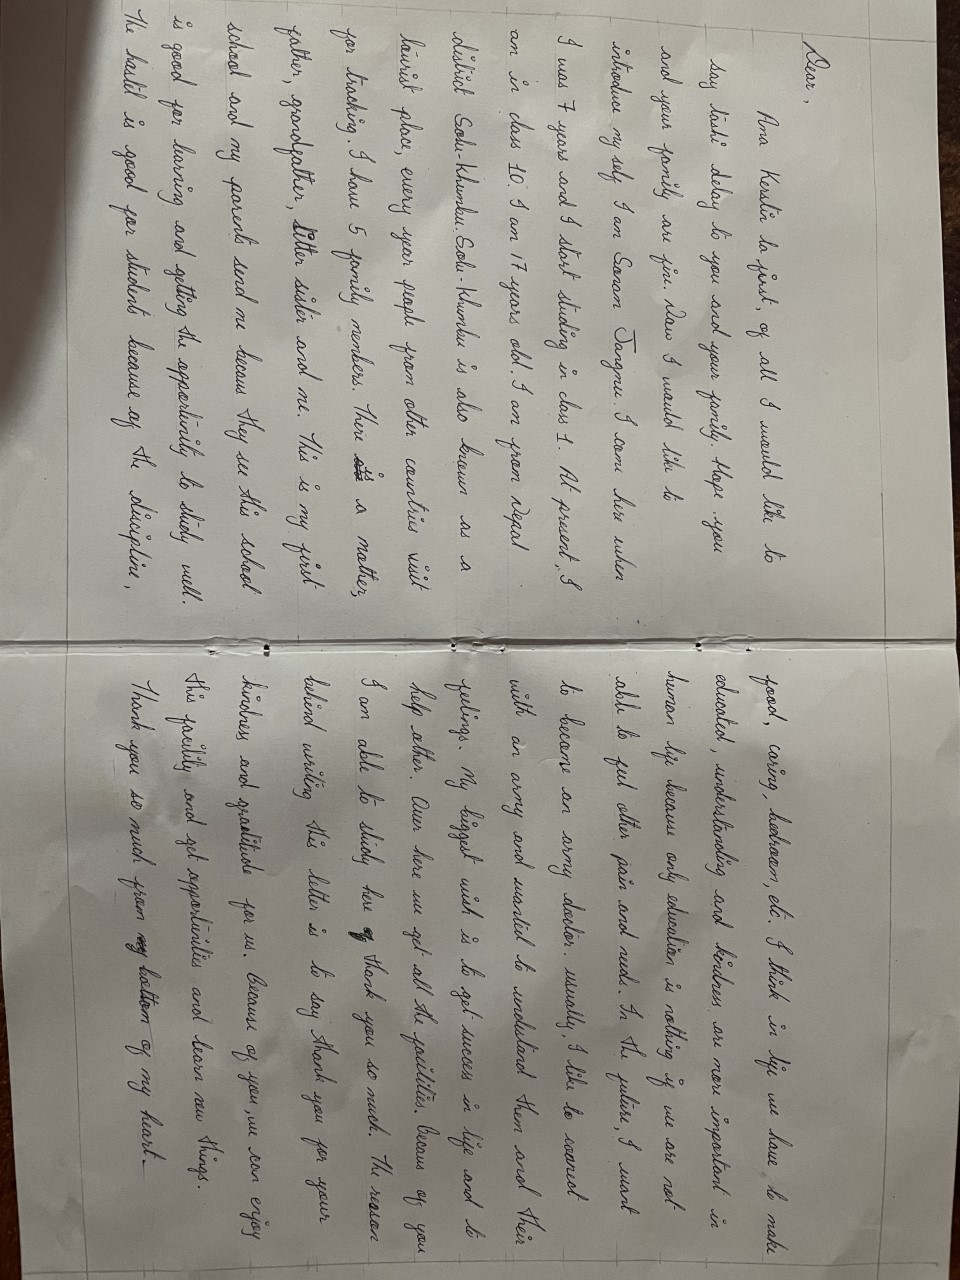 Dear,
Ama Kerstin la first, of all I would like to
say tashi delay to you and your family. Hope you
and your family are fine. Now I would like to
introduce my self. I am Sonam Jangmu. I come here when
I was 7 years and I start studing in class 1. At present, I
am in class 10. I am 17 years old. I am from Nepal
district Solu-khumbu. Solu-khumbu is also known as a
tourist place, every year people from other countries visit
for tracking. I have 5 family members. There is a mother,
father, grandfather, sister and me. This is my first
school and my parents send me becaus they see this school
is good for learning and getting the opportunity to study well.
The hostel is good for students because of the discipline,
food, caring, bedroom, etc. I think in life we have to make
educated, understanding and kindness are more important in
human life because only education is nothing if we are not
able to feel other pain and needs. In the future, I want
to become an army doctor. usually, I like to connect
with an army and wanted to understand them and their
feelings. My biggest wish is to get succes in life and to
help other. Over here we get all the facilities. Becaus of you
I am able to study here thank you so much. The reason
behind writing this letter is to say thank you for your
kindness and gratitude for us. Because of you, we can enjoy
this facility and get opportunities and learn new things.
Thank you so much from bottom of my heart.